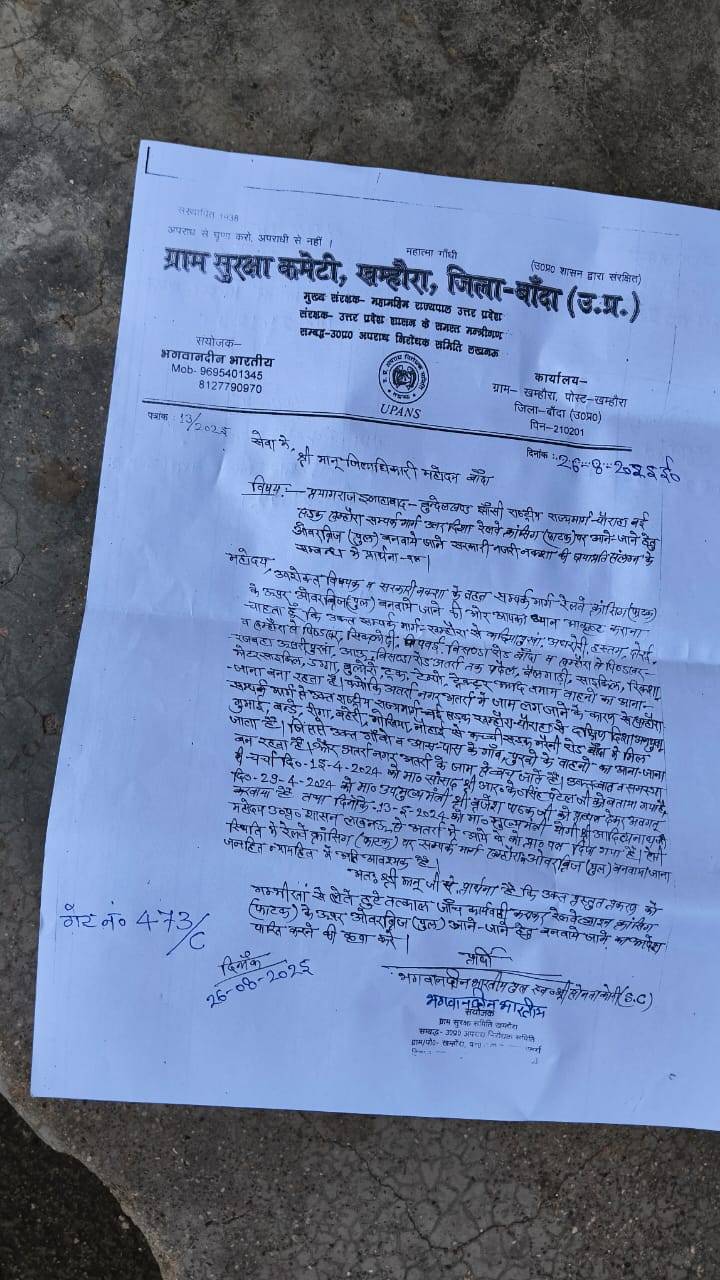 संस्थापित 1938
अपराध से घृणा करो, अपराधी से नहीं ।
महात्मा गाँधी
(उ0प्र0 शासन द्वारा संरक्षित)
ग्राम सुरक्षा कमेटी, खम्हौरा, जिला-बाँदा (उ.प्र.)
मुख्य संरक्षक- महामहिम राज्यपाल उत्तर प्रदेश
संरक्षक- उत्तर प्रदेश शासन के समस्त मन्त्रीगण
सम्बद्ध-उ0प्र0 अपराध निरोधक समिति लखनऊ
संयोजक-
भगवानदीन भारतीय
Mob- 9695401345
8127790970
UPANS
कार्यालय-
ग्राम- खम्हौरा, पोस्ट-खम्हौरा
जिला-बाँदा (उ0प्र0)
पिन-210201
पत्रांक : 13/2025
दिनांक : 26-8-2025ई०
सेवा में,
श्री मान् जिलाधिकारी महोदय बाँदा
विषय:- प्रयागराज इलाहाबाद- बुन्देलखण्ड झाँसी राष्ट्रीय राज्यमार्ग-चौराहा बई
सड़क खम्हौरा सम्पर्क मार्ग उत्तर दिशा रेलवे क्रासिंग (फाटक) पर आने-जाने हेतु
ओवरब्रिज (पुल) बनवाये जाने सरकारी नजरी नक्शा की छायाप्रति संलग्न के
सम्बन्ध में प्रार्थना-पत्र।
महोदय,
उपरोक्त विषयक व सरकारी नक्शा के तहत सम्पर्क मार्ग रेलवे क्रासिंग (फाटक)
के ऊपर ओवरब्रिज (पुल) बनवाये जाने की ओर आपका ध्यान आकृष्ट कराना
चाहता हूँ कि उक्त सम्पर्क मार्ग- खम्हौरा से
व खम्हौरा से बिसण्डा रोड बाँदा व खम्हौरा से
बिसण्डा रोड अतर्रा तक पैदल, बैलगाड़ी, साइकिल, रिक्शा,
मोटरसाइकिल, डग्गा, बुलोरो, ट्रक, टेम्पो, ट्रैक्टर आदि तमाम वाहनों का आना-
जाना बना रहता है। क्योंकि अतर्रा नगर अतर्रा में जाम लग जाने के कारण से खम्हौरा
सम्पर्क मार्ग से उक्त राष्ट्रीय राज्यमार्ग-बई सड़क खम्हौरा-चौराहा से दक्षिण दिशा
कच्ची सड़क रोड बाँदा में मिल
जाता है। जिससे उक्त गाँवों व आस-पास के गाँव, पुरवों के वाहनों का आना-जाना
बन रहता है। और अतर्रा नगर अतर्रा के जाम से बच जाते हैं। उक्त बात व समस्या
की चर्चा दि०-15-4-2024 को मा० सांसद श्री आर० के० सिंह पटेल जी को बताया गया है
दि०-29-4-2024 को मा० उपमुख्यमंत्री श्री बृजेश पाठक जी को ज्ञापन देकर अवगत
करवाया है तथा दिनांक-13-5-2024 को मा० मुख्यमंत्री योगी श्री आदित्यनाथ
महोदय उ०प्र० शासन लखनऊ से अतर्रा में आने पर दिया गया है। ऐसी
स्थिति में रेलवे क्रासिंग (फाटक) पर सम्पर्क मार्ग खम्हौरा ओवरब्रिज (पुल) बनवाया जाना
जनहित न्यायहित में अति आवश्यक है।
अतः श्री मान् जी से प्रार्थना है कि उक्त प्रस्तुत प्रकरण को
गम्भीरता से लेते हुये तत्काल जाँच कार्यवाही कराकर रेलवे लाइन क्रासिंग
(फाटक) के ऊपर ओवरब्रिज (पुल) आने-जाने हेतु बनवाये जाने का आदेश
पारित करने की कृपा करें।
गेट नं० 473/C
दिनाँक
26-08-2025
प्रार्थी
भगवानदीन भारतीय (S.C)
भगवानदीन भारतीय
संयोजक
ग्राम सुरक्षा समिति खम्हौरा
सम्बद्ध- उ0प्र0 अपराध निरोधक समिति
ग्राम/पो0- खम्हौरा,